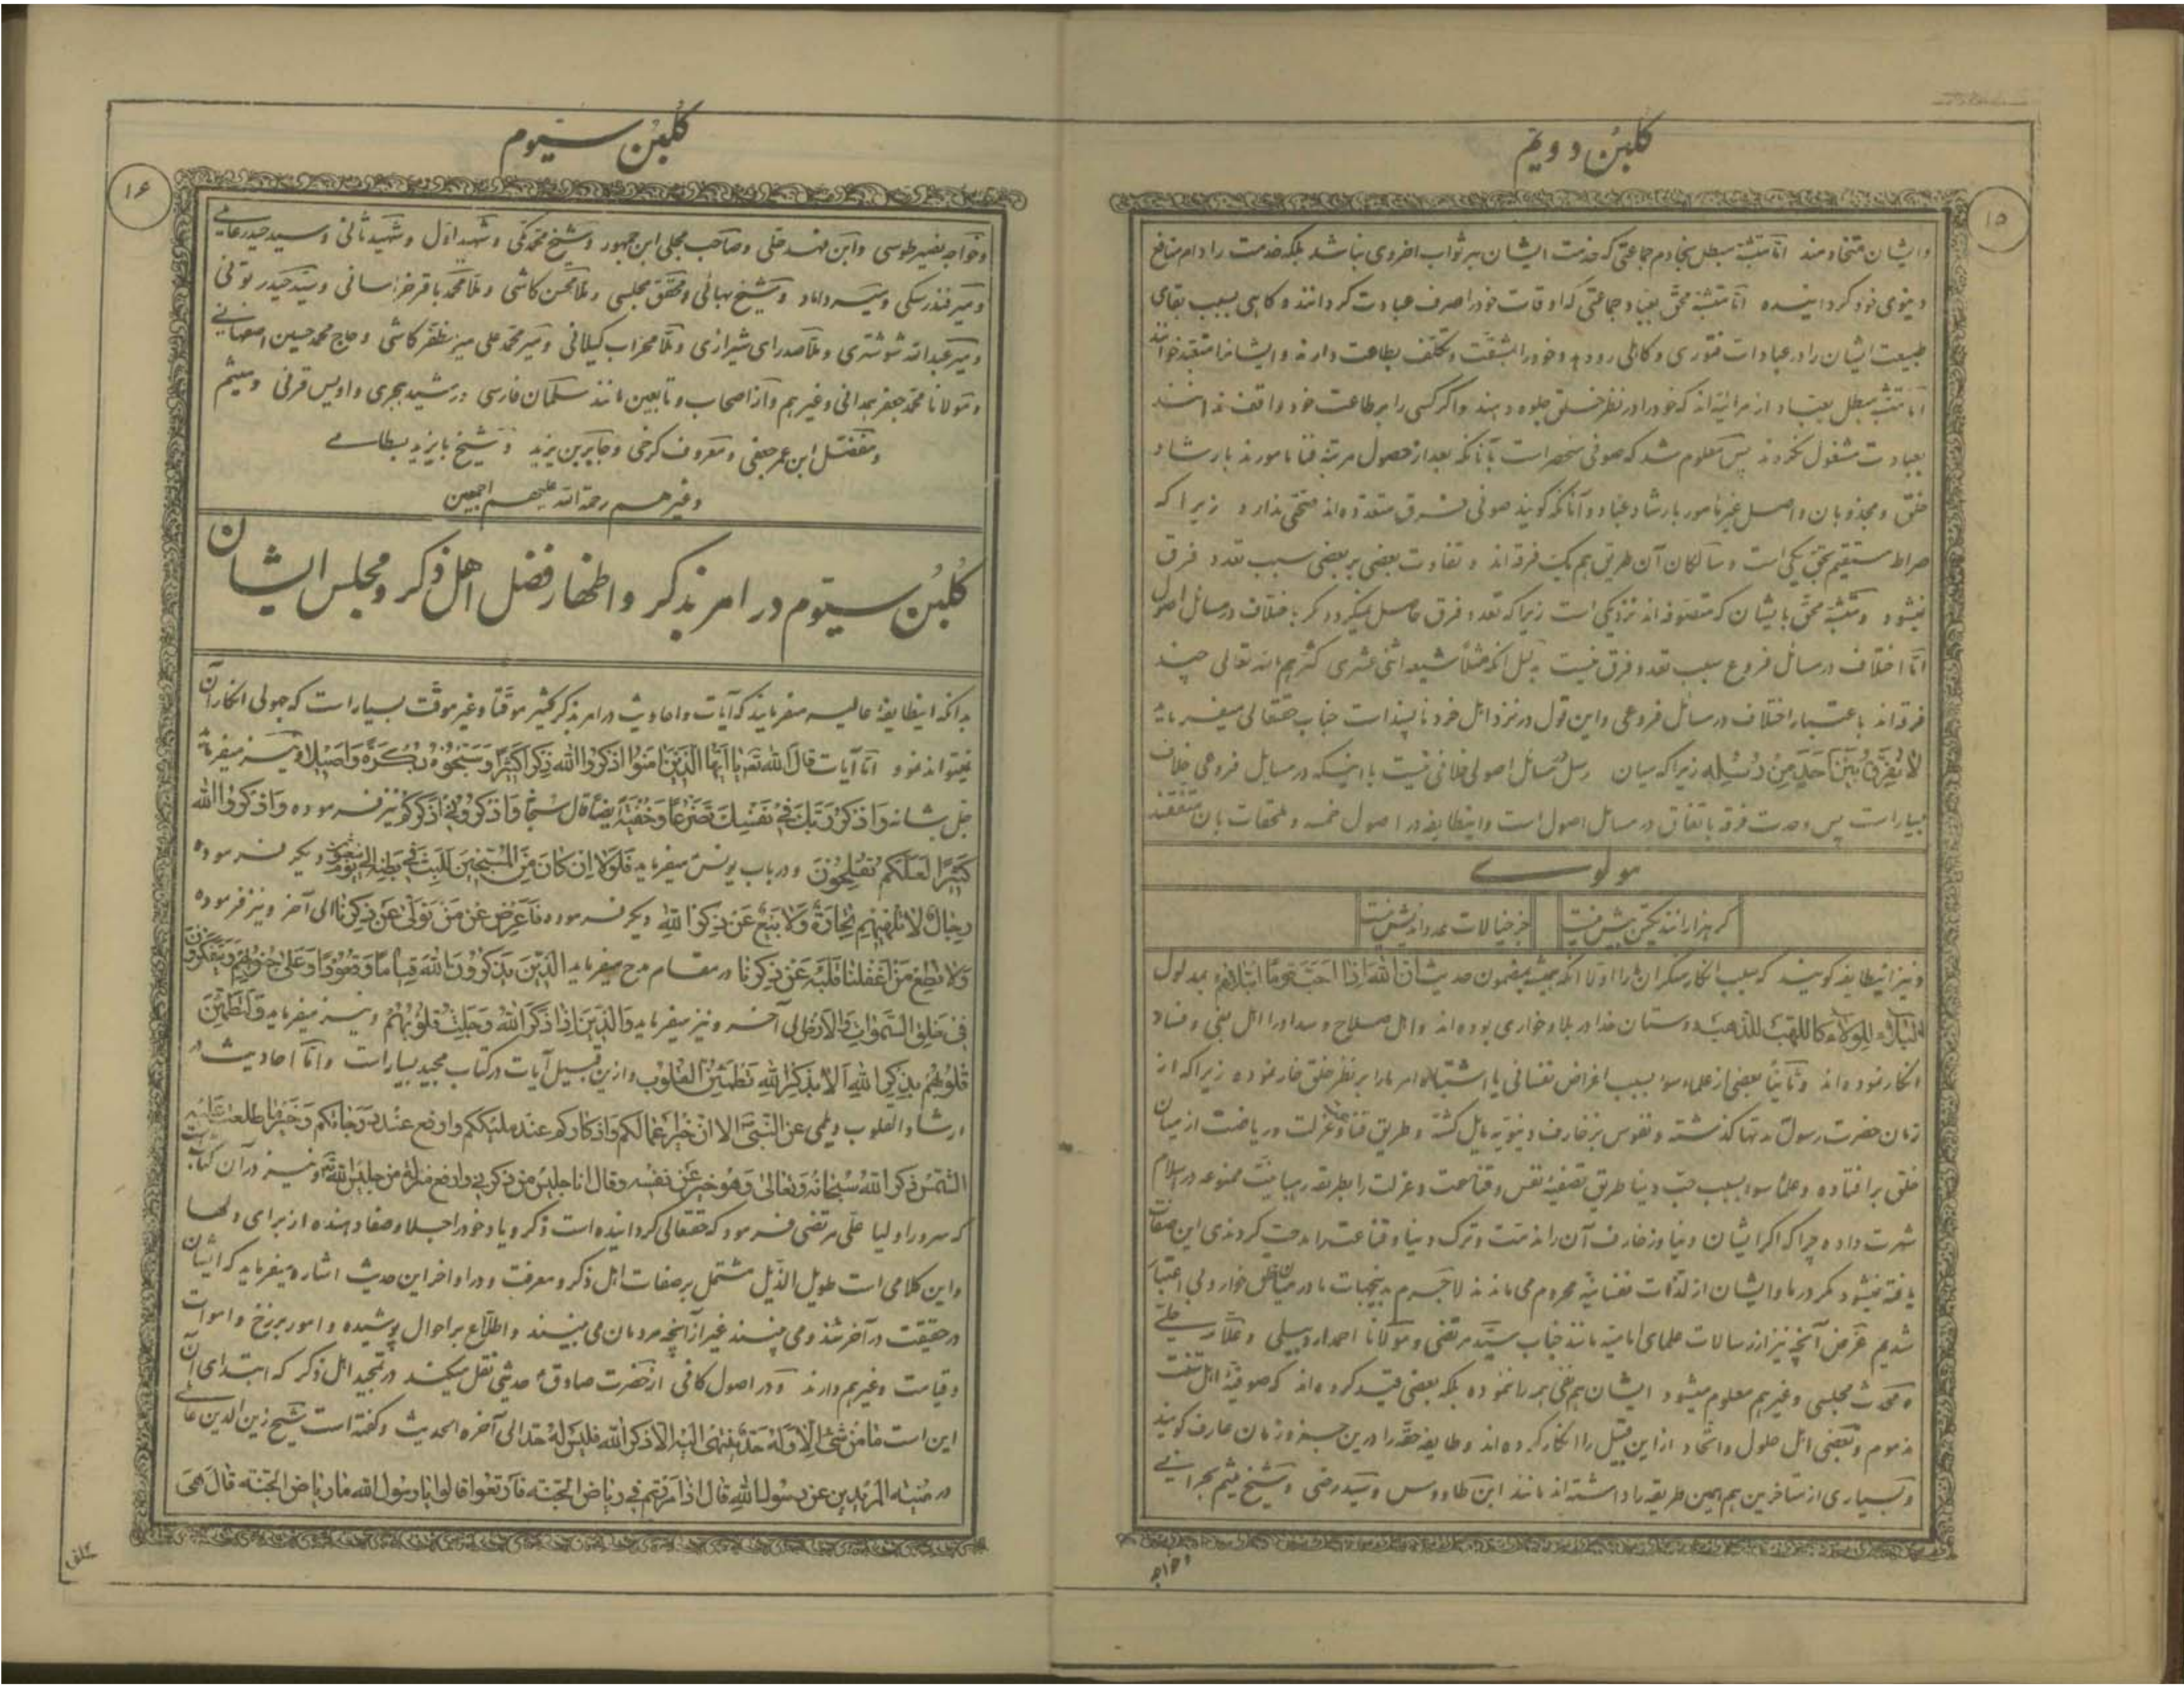 گلبن دویم
۱۵
وایشان متخادمند امّا متشبّه مبطل بخادم جماعتی که خدمت ایشان بر ثواب اخروی نباشد بلکه خدمت را دام منافع
دنیوی خود گردانیده امّا متشبّه محقّ بعبّاد جماعتی که اوقات خود را صرف عبادت گردانند و گاهی بسبب بقای
طبیعت ایشان را در عبادات فتوری و کاهلی رو دهد و خود را بمشقّت و تکلّف بطاعت دارند و ایشانرا متعبّد خوانند
امّا متشبّه مبطل بعبّاد از مرائیانند که خود را در نظر خلق جلوه دهند و اگر کسی را بر طاعت خود واقف ندانند
بعبادت مشغول نگردند پس معلوم شد که صوفی منحصر است بآنانکه بعد از حصول مرتبهٔ فنا مامورند بارشاد
خلق و مجذوبان واصل غیر مامور بارشاد عباد و آنانکه گویند صوفی فرق متعدده‌اند تحقّقی ندارد زیرا که
صراط مستقیم بحقّ یکی است و سالکان آن طریق هم یک فرقه‌اند و تفاوت بعضی بر بعضی سبب تعدد فرق
نمیشود و متشبّه محقّ بایشان که متصوّفه‌اند نزدیکی است زیرا که تعدد فرق حاصل نمیگردد مگر باختلاف در مسائل اصول
امّا اختلاف در مسائل فروع سبب تعدد فرق نیست بدلیل آنکه مثلاً شیعه اثنی عشری کثّرهم الله تعالی چند
فرقه‌اند باعتبار اختلاف در مسائل فروعی و این قول در نزد اهل خرد ناپسند است جناب حقتعالی میفرماید
لا نُفَرِّقُ بَیْنَ اَحَدٍ مِنْ رُسُلِهِ زیرا که میان رسل در مسائل اصولی خلافی نیست با اینکه در مسایل فروعی خلاف
بسیار است پس وحدت فرقه باتفاق در مسایل اصول است و اینطایفه در اصول خمسه و ملحقات بآن متفقند
مولوی
گر هزارانند یکتن بیش نیست
جز خیالات عدد اندیش نیست
و نیز اینطایفه گویند که سبب انکار منکران را اولا آنکه همیشه بمضمون حدیث ان الله اذا احبّ قوما ابتلاهم بمدلول
البلاء للولاء کاللهب للذهب دوستان خدا در بلا و خواری بوده‌اند و اهل صلاح و سداد را اهل بغی و فساد
انکار نموده‌اند و ثانیاً بعضی از علماء سوء بسبب اغراض نفسانی یا اشتباه امر ما را بر نظر خلق خار نموده زیرا که از
زمان حضرت رسول مدتها گذشته و نفوس بزخارف دنیویّه مایل گشته و طریق فنا و عزلت و ریاضت از میان
خلق بر افتاده و علماء سوء بسبب حبّ دنیا طریق تصفیهٔ نفس و قناعت و عزلت را بطریقه رهبانیت ممنوعه در اسلام
شهرت داده چرا که اگر ایشان دنیا و زخارف آن را مذمّت و ترک دنیا و قناعت را مدحت کردندی این صفات
یافته نمیشود مگر در ما و ایشان از لذّات نفسانیّه محروم می‌ماندند لاجرم بدینجهات ما در میان خلق خوار و بی اعتبار
شدیم غرض آنچه نیز از رسالات علمای امامیّه مانند جناب سیّد مرتضی و مولانا احمد اردبیلی و علّامه حلّی
و محدّث مجلسی و غیرهم معلوم میشود ایشان هم نفی همه را ننموده بلکه بعضی قید کرده‌اند که صوفیّهٔ اهل سنّت
مذموم و بعضی اهل حلول و اتّحاد از این قبیل را انکار کرده‌اند و طایفه حقّه را درین جزو زمان عارف گویند
و بسیاری از متاخرین هم همین طریقه را داشته‌اند مانند ابن طاووس و سیّد رضی و شیخ میثم بحرانی
وخواجه
گلبن سیّوم
۱۶
وخواجه نصیر طوسی و ابن فهد حلّی و صاحب مجلی ابن جمهور و شیخ محمّد مکّی و شهید اوّل و شهید ثانی و سید حیدر عاملی
و میر فندرسکی و میر داماد و شیخ بهائی و محقّق مجلسی و ملّا محسن کاشی و ملّا محمّد باقر خراسانی و سیّد حیدر تونی
و میر عبدالله شوشتری و ملّا صدرای شیرازی و ملّا محراب گیلانی و میر محمّد علی میر مظفّر کاشی و حاج محمّد حسین اصفهانی
و مولانا محمّد جعفر همدانی و غیرهم و از اصحاب و تابعین مانند سلمان فارسی و رشید هجری و اویس قرنی و میثم
و مفضّل ابن عمر جعفی و معروف کرخی و جابر بن یزید و شیخ بایزید بسطامی
و غیرهم رحمة الله علیهم اجمعین
گلبن سیّوم در امر بذکر و اظهار فضل اهل ذکر و مجلس ایشان
بدانکه اینطایفهٔ عالیه میفرمایند که آیات و احادیث در امر بذکر کثیر موقّتا و غیر موقّت بسیار است که جهولی انکار آن
نمیتواند نمود امّا آیات قال الله تعَ یا اَیُّهَا الَّذینَ امَنُوا اذْکُرُوا اللهَ ذِکْراً کَثیراً وَ سَبِّحُوهُ بُکْرَةً وَ اَصیلاً و نیز میفرماید
جل شانه وَ اذْکُرْ رَبَّکَ فی نَفْسِکَ تَضَرُّعاً وَ خُفْیَةً ایضاً قال سبحانه فَاذْکُرُونی اَذْکُرْکُمْ نیز فرموده وَ اذْکُرُوا اللهَ
کَثیراً لَعَلَّکُمْ تُفْلِحُونَ و در باب یونس میفرماید فَلَوْلا اِنْ کانَ مِنَ الْمُسَبِّحینَ لَلَبِثَ فی بَطْنِهِ اِلی یَوْمِ یُبْعَثُونَ و دیگر فرموده
رِجالٌ لا تُلْهیهِمْ تِجارَةٌ وَ لا بَیْعٌ عَنْ ذِکْرِ اللهِ و دیگر فرموده فَاَعْرِضْ عَنْ مَنْ تَوَلّی عَنْ ذِکْرِنا الی آخر و نیز فرموده
وَلا تُطِعْ مَنْ اَغْفَلْنا قَلْبَهُ عَنْ ذِکْرِنا در مقام مدح میفرماید اَلَّذینَ یَذْکُرُونَ اللهَ قِیاماً وَ قُعُوداً وَ عَلی جُنُوبِهِمْ وَ یَتَفَکَّرُونَ
فی خَلْقِ السَّمواتِ وَ الْاَرْضِ الی آخره و نیز میفرماید وَ الَّذینَ اِذا ذُکِرَ اللهُ وَجِلَتْ قُلُوبُهُمْ و نیز میفرماید وَ تَطْمَئِنُّ
قُلُوبُهُمْ بِذِکْرِ اللهِ اَلا بِذِکْرِ اللهِ تَطْمَئِنُّ الْقُلُوبُ و ازین قبیل آیات در کتاب مجید بسیار است و امّا احادیث در
ارشاد القلوب دیلمی عن النّبیّ الا ان خیر اعمالکم و اذکارکم عند ملیککم و ارفع عند درجاتکم و خیر ما طلعت علیه
الشّمس ذکر الله سبحانه و تعالی و هو خبر عن نفسه و قال انا جلیس من ذکرنی و ارفع منزلة من جلیس الله و نیز در آن کتابست
که سرور اولیا علی مرتضی فرمود که حقتعالی گردانیده است ذکر و یاد خود را جلا و صفا دهنده از برای دلها
و این کلامی است طویل الذّیل مشتمل بر صفات اهل ذکر و معرفت و در اواخر این حدیث اشاره میفرماید که ایشان
در حقیقت در آخرتند و می‌بینند غیر از آنچه مردمان می‌بینند و اطلاّع بر احوال پوشیده و امور برزخ و اموات
و قیامت و غیرهم دارند و در اصول کافی از حضرت صادق ع حدیثی نقل میکند در تمجید اهل ذکر که ابتدای آن
این است ما من شیء الّا و له حدّ ینتهی الیه الّا ذکر الله فلیس له حدّ الی آخره الحدیث و گفته است شیخ زین الدین عاملی
در منیة المریدین عن رسول الله قال اذا مررتم فی ریاض الجنّة فارتعوا قالوا یا رسول الله ما ریاض الجنّة قال هی
حلق